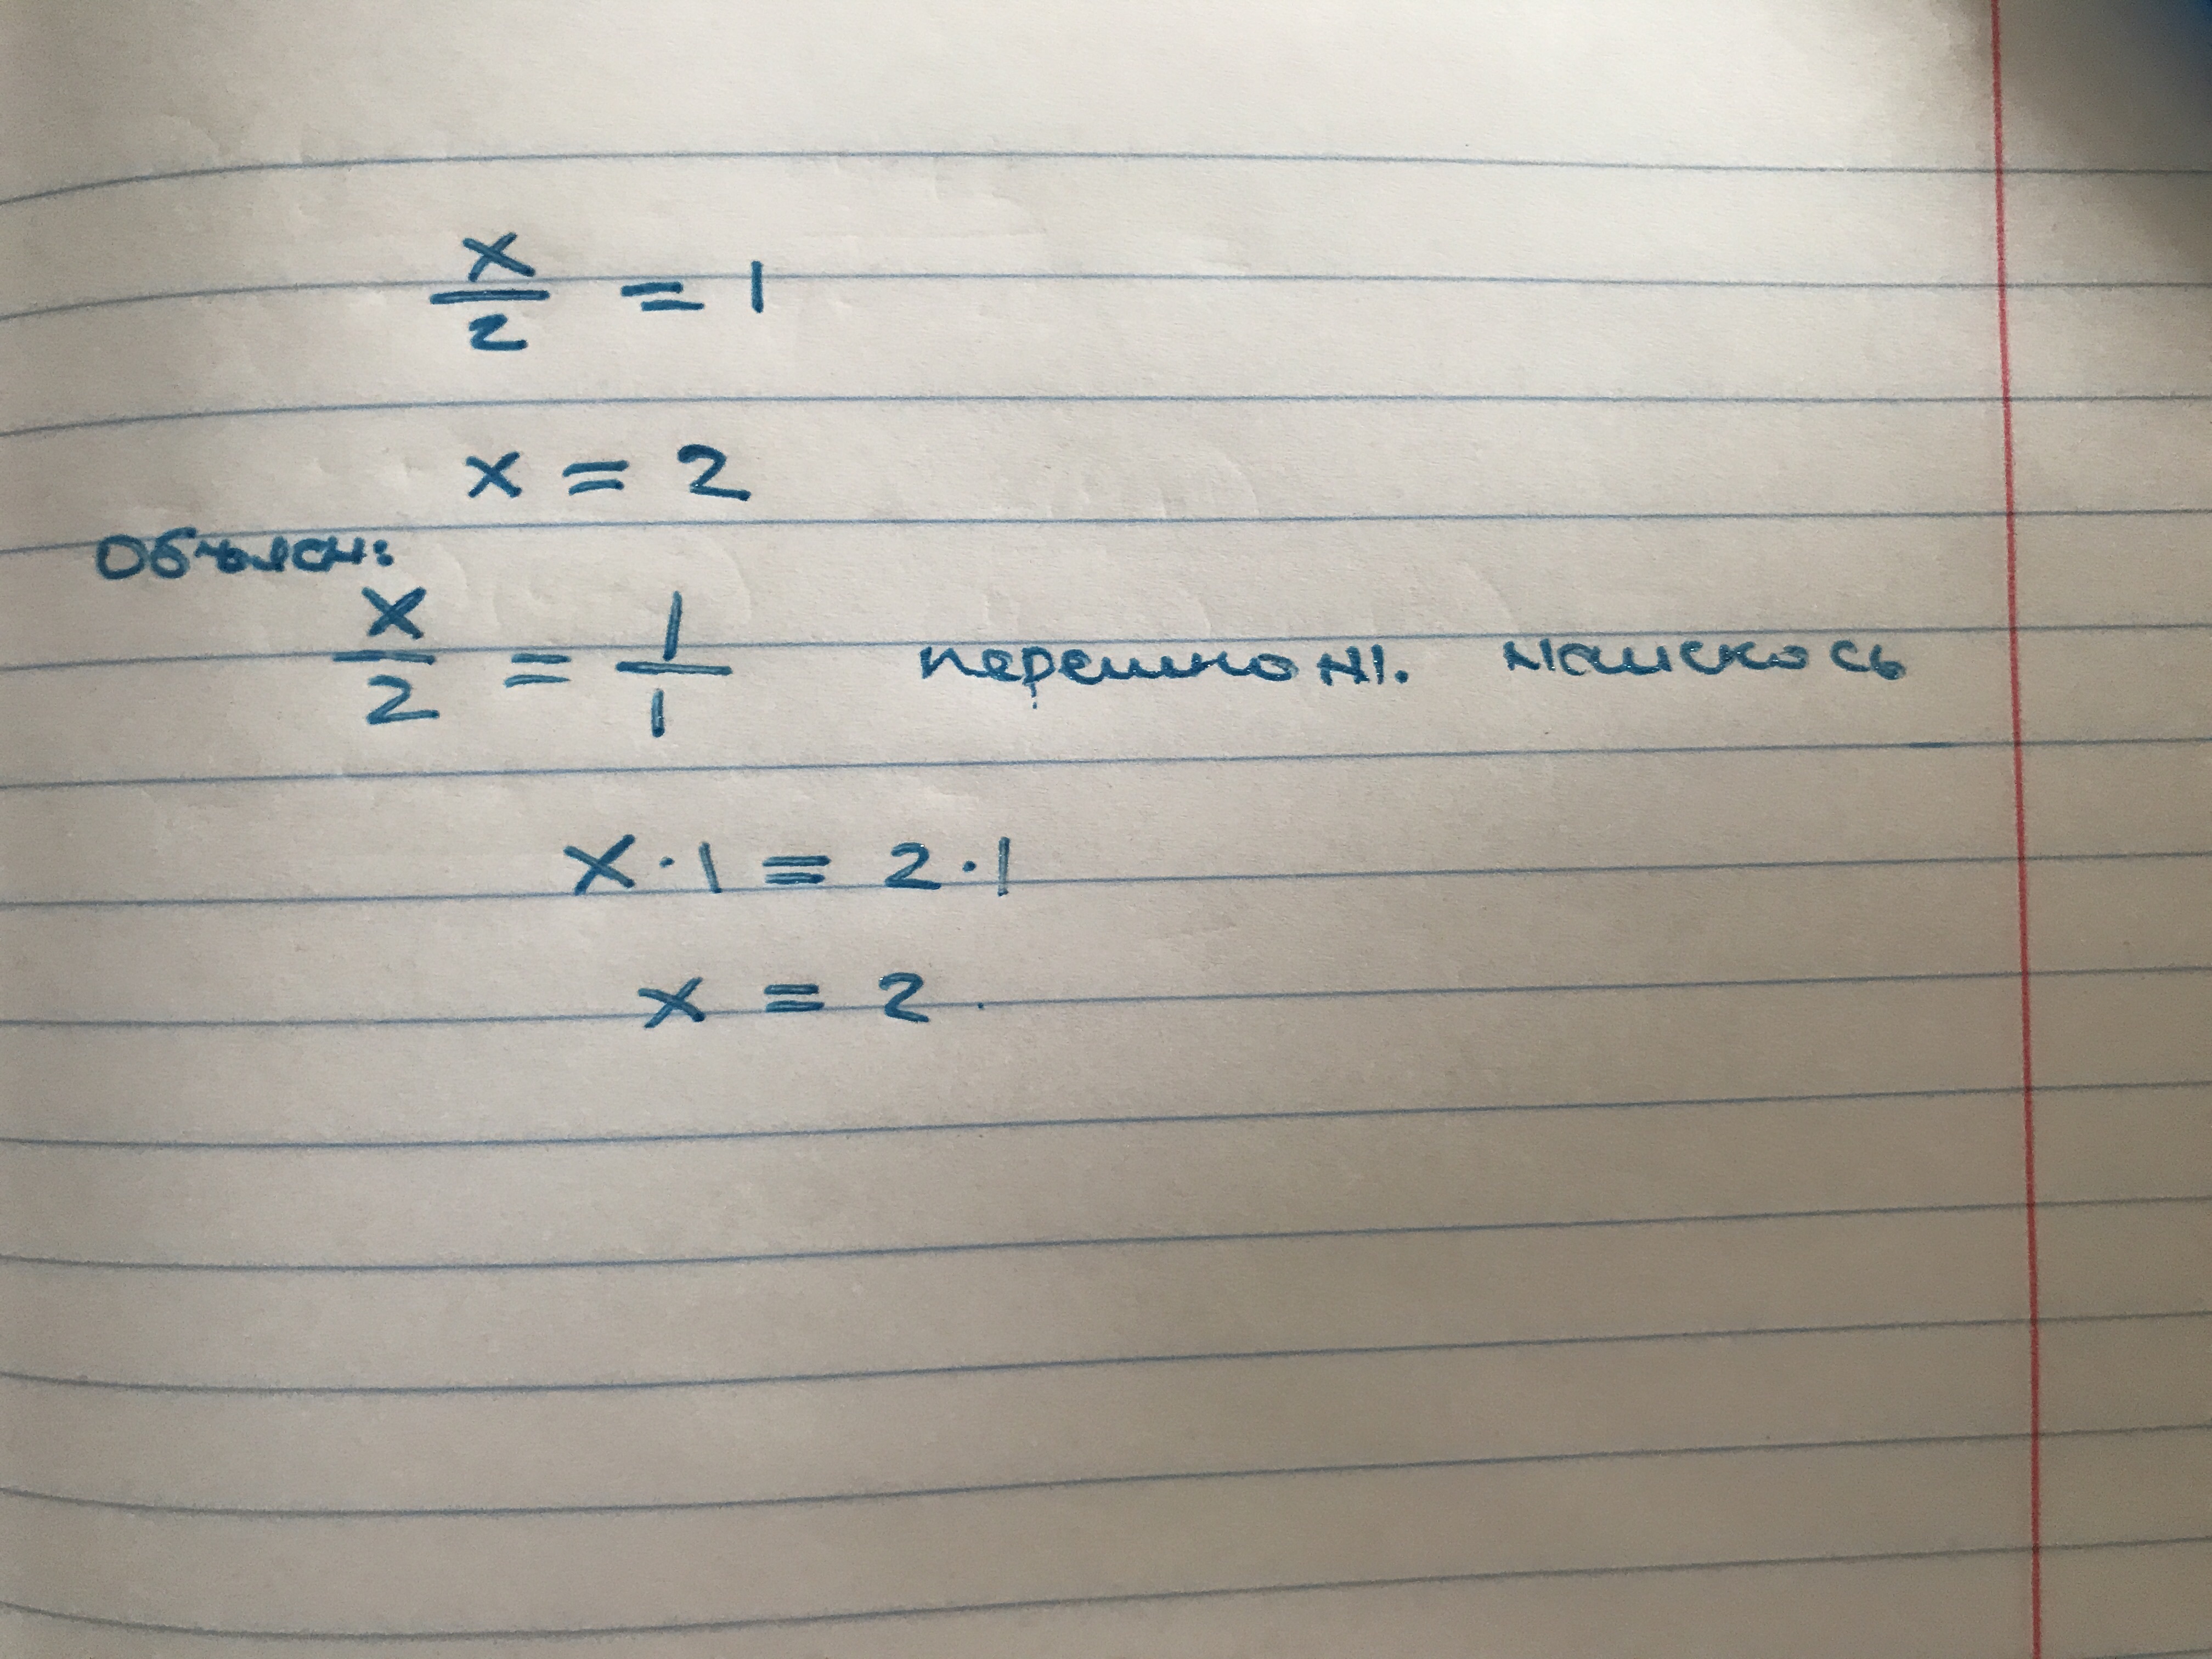 x/2 = 1
x = 2
Объясн:
x/2 = 1/1 перемнож. наискось
x · 1 = 2 · 1
x = 2.